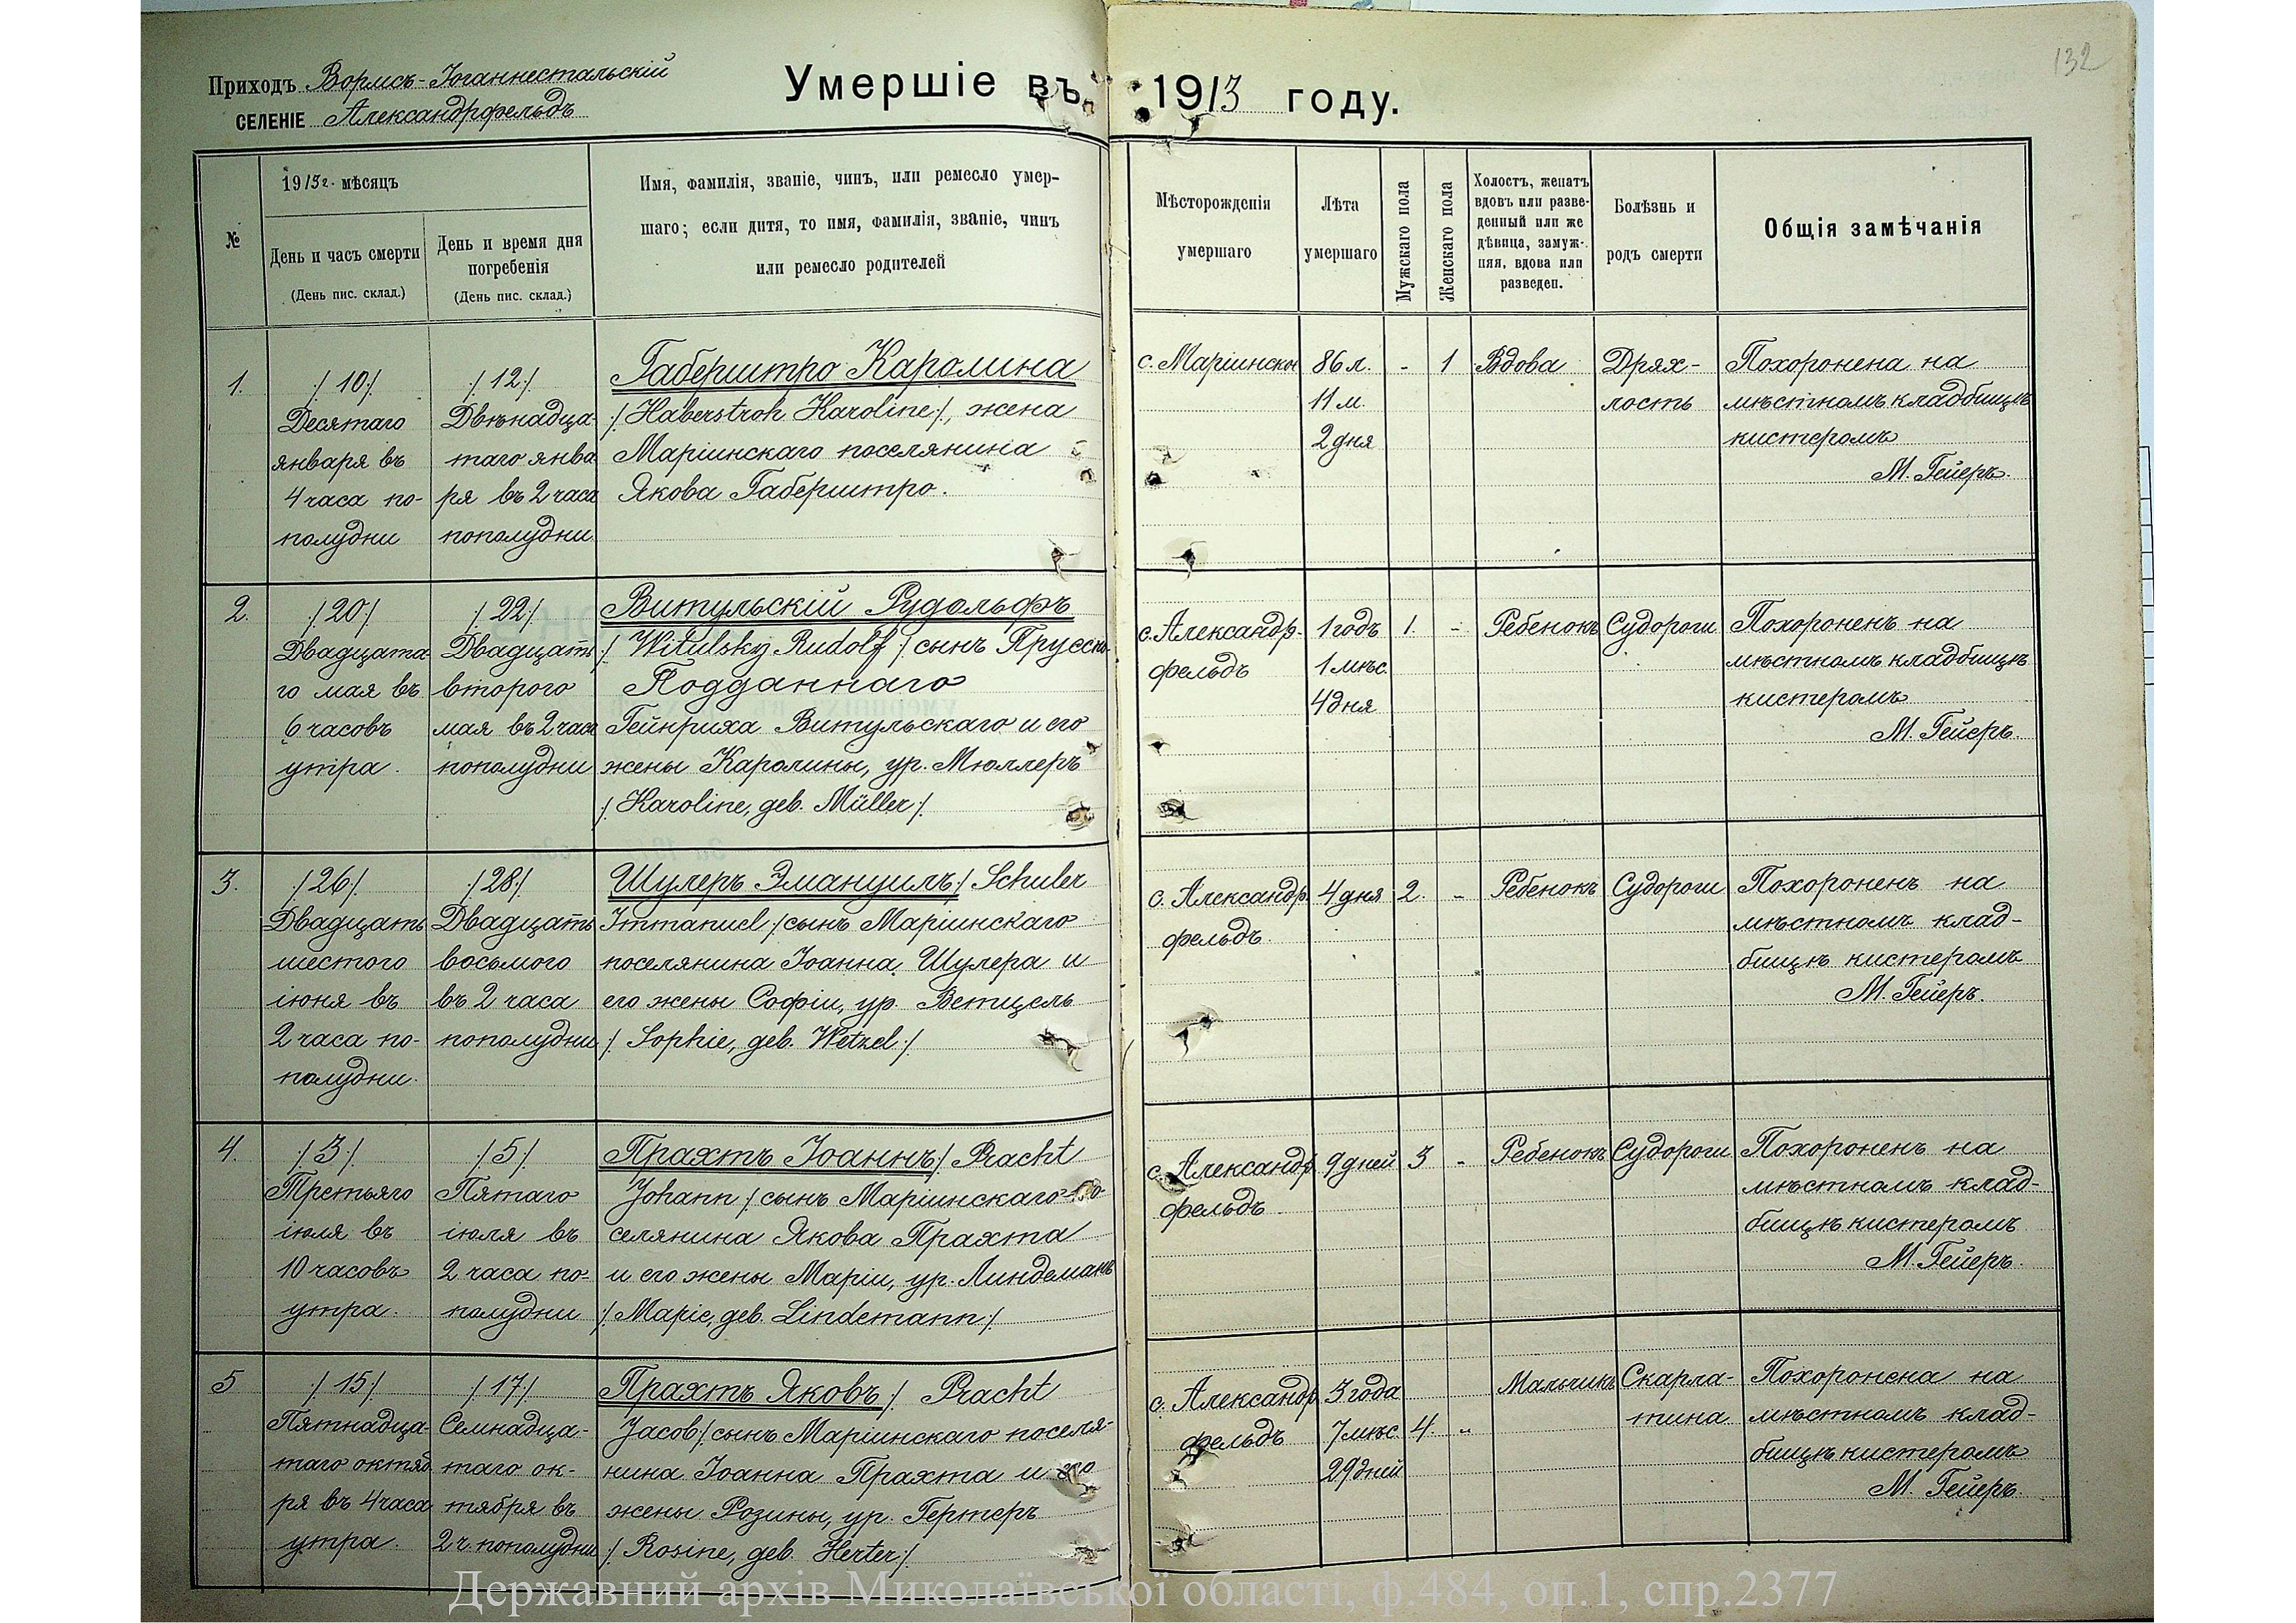 132
Приходъ Вормсъ-Іоганнестальскій
селеніе Александрфельдъ
Умершіе въ 1913 году.
№
1913 г. мѣсяцъ
День и часъ смерти
(День пис. склад.)
День и время дня
погребенія
(День пис. склад.)
Имя, фамилія, званіе, чинъ, или ремесло умер-
шаго; если дитя, то имя, фамилія, званіе, чинъ
или ремесло родителей
Мѣсторожденія
умершаго
Лѣта
умершаго
Мужскаго пола
Женскаго пола
Холостъ, женатъ
вдовъ или разве-
денный или же
дѣвица, замуж-
няя, вдова или
разведен.
Болѣзнь и
родъ смерти
Общія замѣчанія
1.
/:10:/
Десятаго
января въ
4 часа по-
полудни
/:12:/
Двѣнадца-
таго янва
ря въ 2 часа
пополудни
Габерштро Каролина
/:Haberstroh Karoline:/, жена
Маріинскаго поселянина
Якова Габерштро.
с. Маріинское
86 л.
11 м.
2 дня
-
1
Вдова
Дрях-
лость
Похоронена на
мѣстномъ кладбищѣ
кистеромъ
М. Гейеръ.
2.
/:20:/
Двадцата-
го мая въ
6 часовъ
утра.
/:22:/
Двадцать
второго
мая въ 2 часа
пополудни
Витульскій Рудольфъ
/:Witulsky Rudolf:/ сынъ Прусск.
Подданнаго
Гейнриха Витульскаго и его
жены Каролины, ур. Мюллеръ
/:Karoline, geb. Müller:/
с. Александр-
фельдъ
1 годъ
1 мѣс.
4 дня
1.
-
Ребенокъ
Судороги
Похороненъ на
мѣстномъ кладбищѣ
кистеромъ
М. Гейеръ.
3.
/:26:/
Двадцать
шестого
іюня въ
2 часа по-
полудни.
/:28:/
Двадцать
восьмого
въ 2 часа
пополудни
Шулеръ Эмануилъ /:Schuler
Immanuel:/ сынъ Маріинскаго
поселянина Іоанна Шулера и
его жены Софіи, ур. Ветцель
/:Sophie, geb. Wetzel:/
с. Александр.
фельдъ.
4 дня
2.
-
Ребенокъ
Судороги
Похороненъ на
мѣстномъ клад-
бищѣ кистеромъ
М. Гейеръ.
4.
/:3:/
Третьяго
іюля въ
10 часовъ
утра.
/:5:/
Пятаго
іюля въ
2 часа по-
полудни
Прахтъ Іоаннъ /:Pracht
Johann:/ сынъ Маріинскаго по-
селянина Якова Прахта
и его жены Маріи, ур. Линдеманъ
/:Маріе, geb. Lindemann:/
с. Александр.
фельдъ.
9 дней
3
-
Ребенокъ
Судороги
Похороненъ на
мѣстномъ клад-
бищѣ кистеромъ
М. Гейеръ.
5
/:15:/
Пятнадца-
таго октяб
ря въ 4 часа
утра.
/:17:/
Семнадца-
таго ок-
тября въ
2 ч. пополудни
Прахтъ Яковъ /:Pracht
Jacob:/ сынъ Маріинскаго поселя-
нина Іоанна Прахта и его
жены Розины, ур. Гертеръ
/:Rosine, geb. Herter:/
с. Александр
фельдъ
3 года
7 мѣс
29 дней
4.
"
Мальчикъ
Скарла-
тина
Похоронена на
мѣстномъ клад-
бищѣ кистеромъ
М. Гейеръ.
Державний архів Миколаївської області, ф.484, оп.1, спр.2377